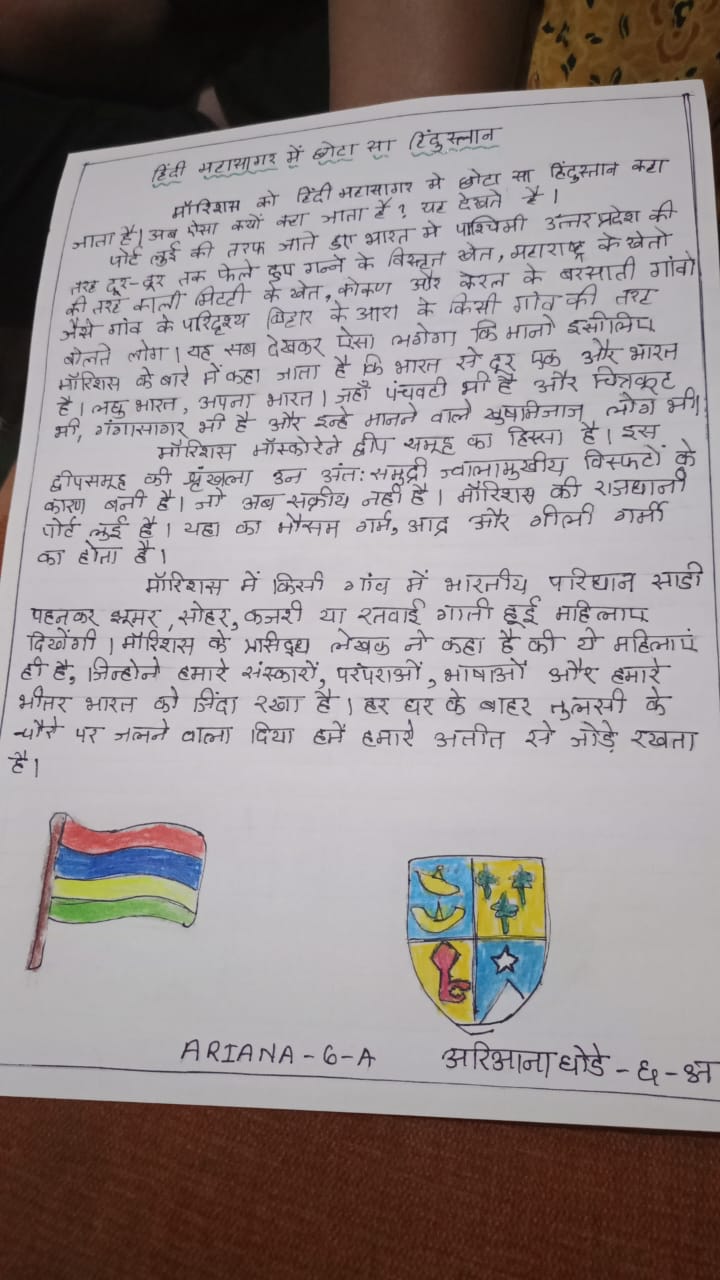 हिंदी महासागर में छोटा सा हिंदुस्तान
मॉरिशस को हिंदी महासागर मे छोटा सा हिंदुस्तान कहा
जाता है। अब ऐसा क्यों कहा जाता है? यह देखते है।
पोर्ट लुई की तरफ जाते हुए भारत मे पाश्चिमी उत्तरप्रदेश की
तरह दूर-दूर तक फेले हुए गन्ने के विस्तृत खेत, महाराष्ट्र के खेतो
की तरह काली मिटटी के खेत, कोकण और केरल के बरसाती गांवो
जैसे गांव के परिदृश्य बिहार के आरा के किसी गांव की तरह
बोलते लोग। यह सब देखकर ऐसा लगेगा कि मानो इसीलिए
मॉरिशस के बारे में कहा जाता है कि भारत से दूर एक और भारत
है। लघु भारत, अपना भारत। जहाँ पंचवटी भी है और चित्रकूट
भी, गंगासागर भी है और इन्हे मानने वाले खुषमिजाज लोग भी।
मॉरिशस मॉस्कोरेने द्वीप समूह का हिस्सा है। इस
द्वीपसमूह की श्रृंखला उन अंतः समुद्री ज्वालामुखीय विस्फटों के
कारण बनी है। जो अब सक्रीय नही है। मॉरिशस की राजधानी
पोर्ट लुई है। यहा का मौसम गर्म, आद्र और गीली गर्मी
का होता है।
मॉरिशस में किसी गांव में भारतीय परिधान साडी
पहनकर झूमर, सोहर, कजरी या रतवाई गाती हुई महिलाए
दिखेंगी। मॉरिशस के प्रसिद्ध लेखक ने कहा है की ये महिलाएं
ही है, जिन्होने हमारे संस्कारों, परंपराओं, भाषाओं और हमारे
भीतर भारत को जिंदा रखा है। हर घर के बाहर तुलसी के
चौरे पर जलने वाला दिया हमें हमारे अतीत से जोड़े रखता
है।
ARIANA-6-A
अरिआना घोडे - ६ - अ